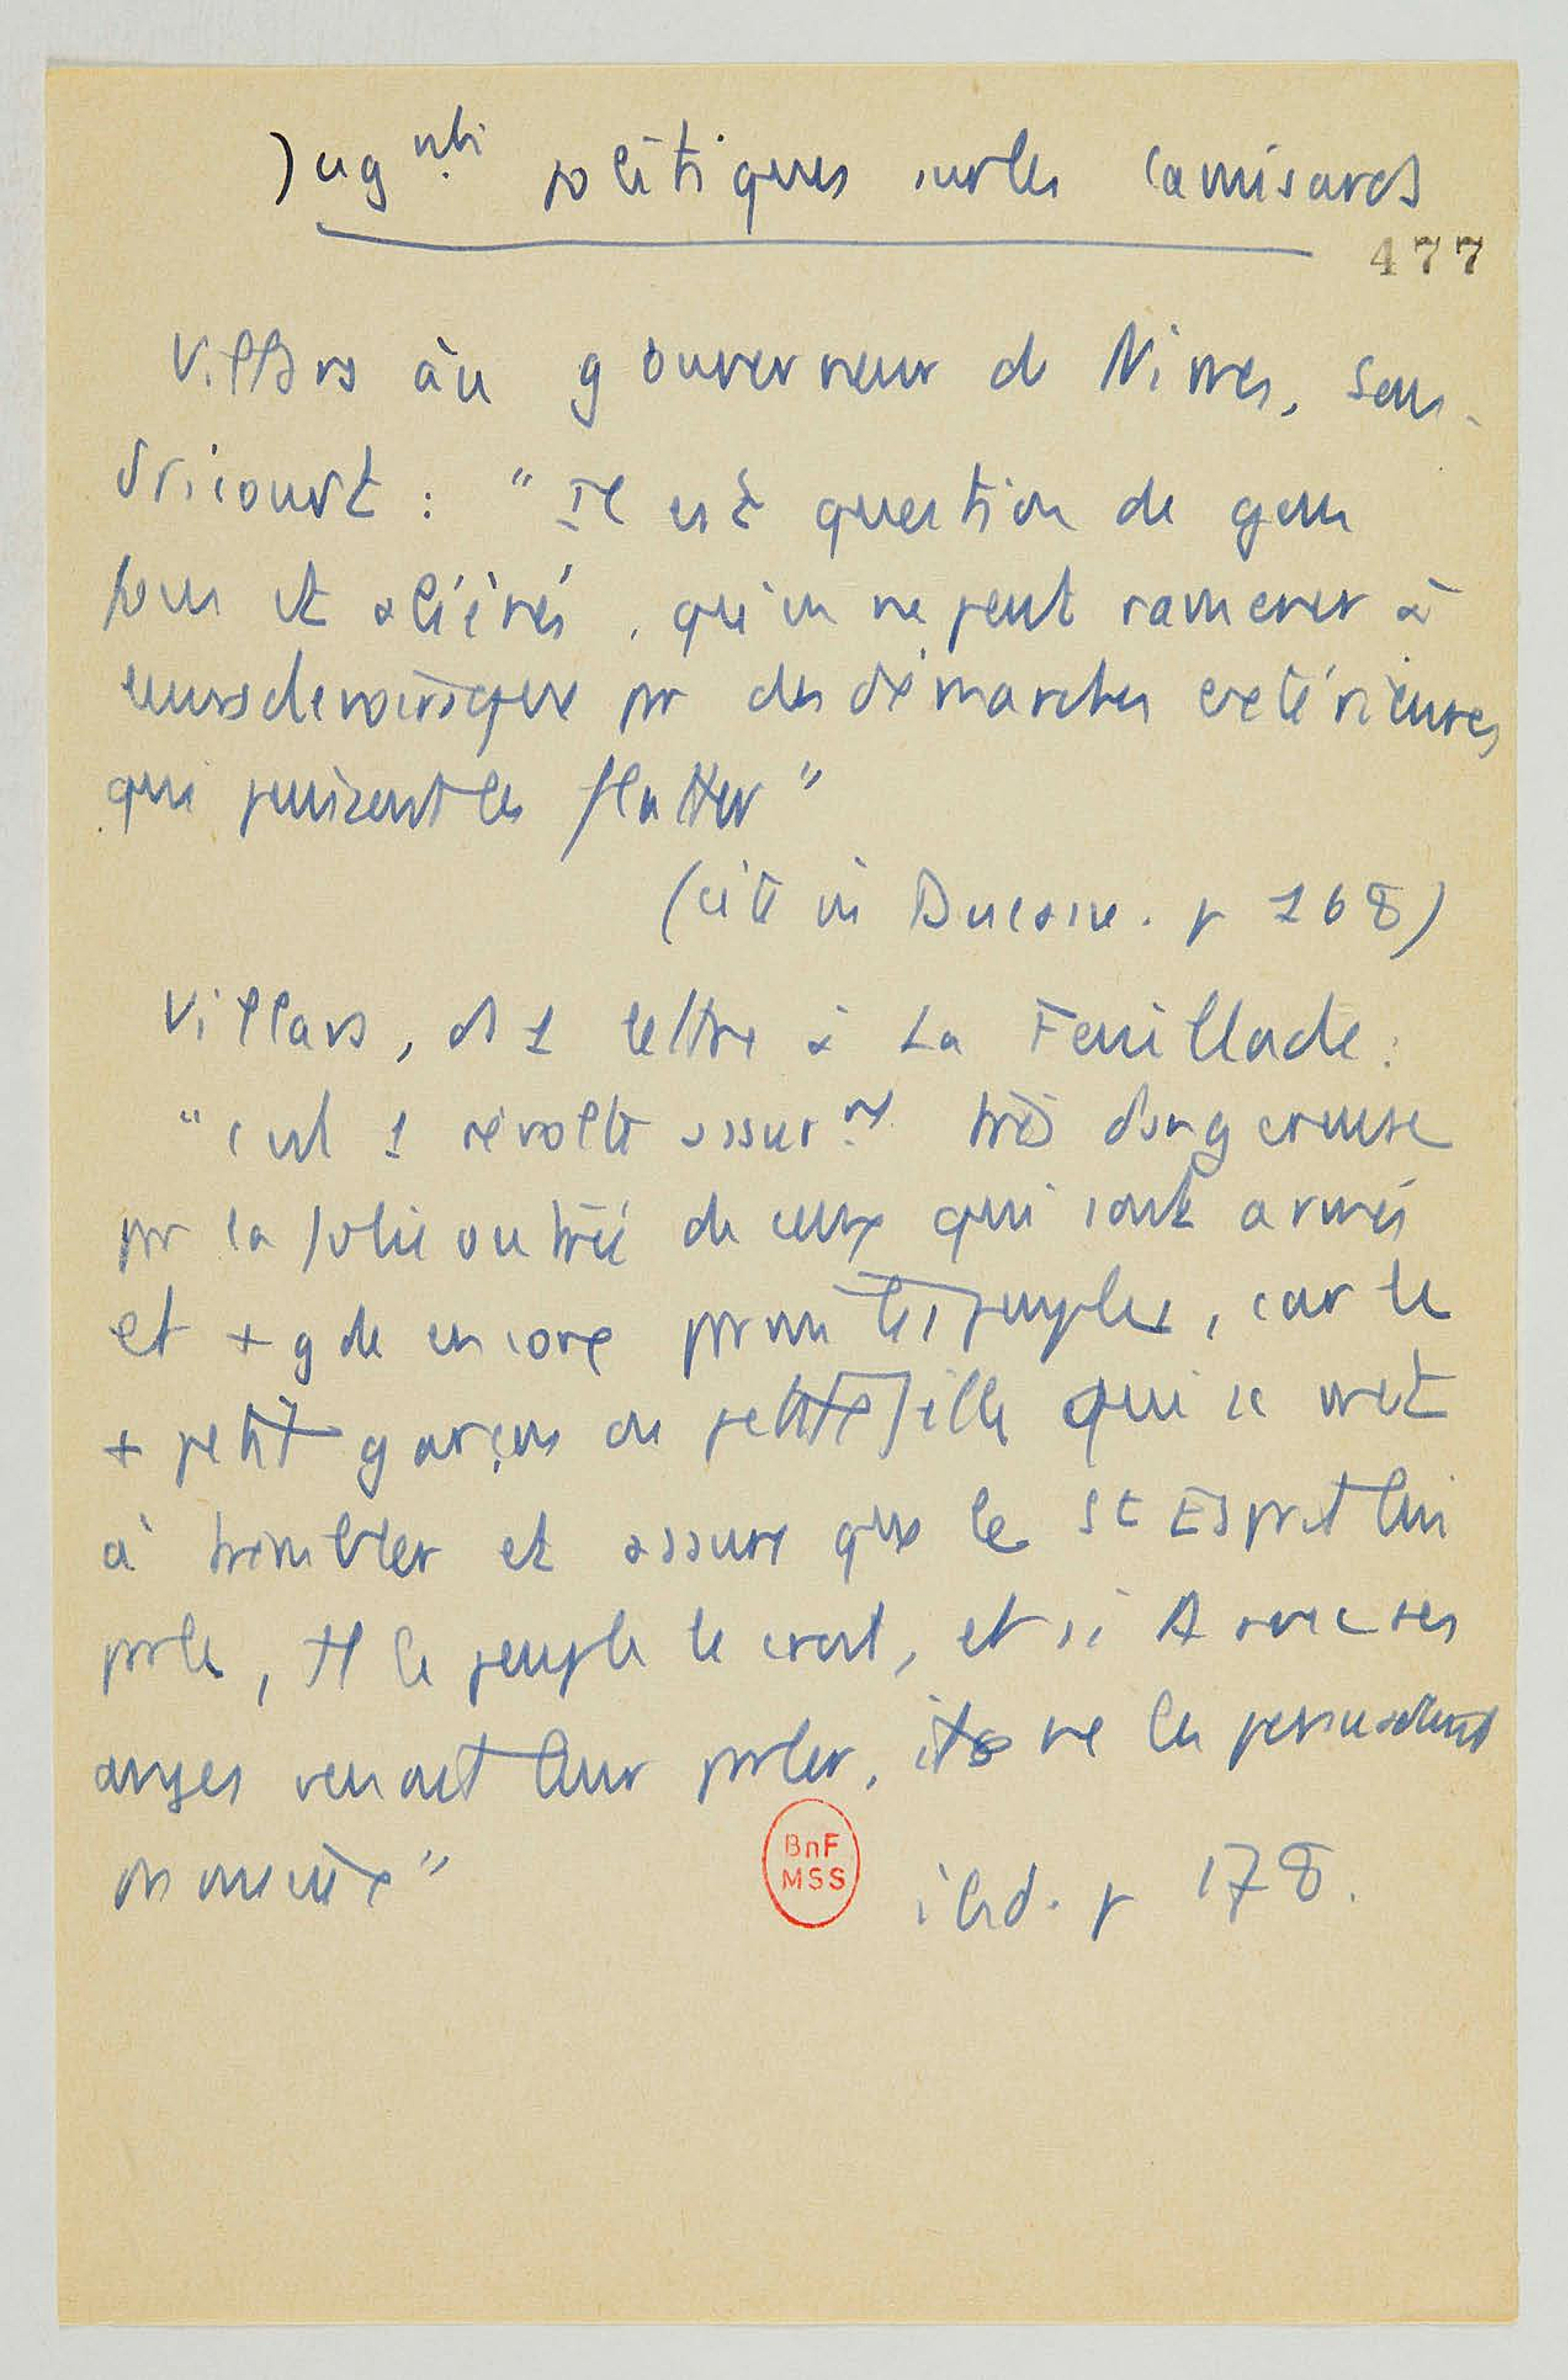 Jugmts politiques sur les Camisards
477
Villars au gouverneur de Nimes, San-
dricourt : "Il est question de gens
fous et aliénés, qu'on ne peut ramener à
leurs devoirs que par des démarches extérieures
qui puissent les flatter"
(cité in Ducasse. p 168)
Villars, ds 1 lettre à La Feuillade :
"c'est 1 révolte assurmt très dangereuse
par la folie outrée de ceux qui sont armés
et + gde encore parmi les peuples, car le
+ petit garçon ou petite fille qui se met
à trembler et assure que le St Esprit lui
parle, tt le peuple le croit, et si avec ses
anges venait leur parler, ils ne les persuaderait
pas mieux"
BnF
MSS
ibid. p 178.